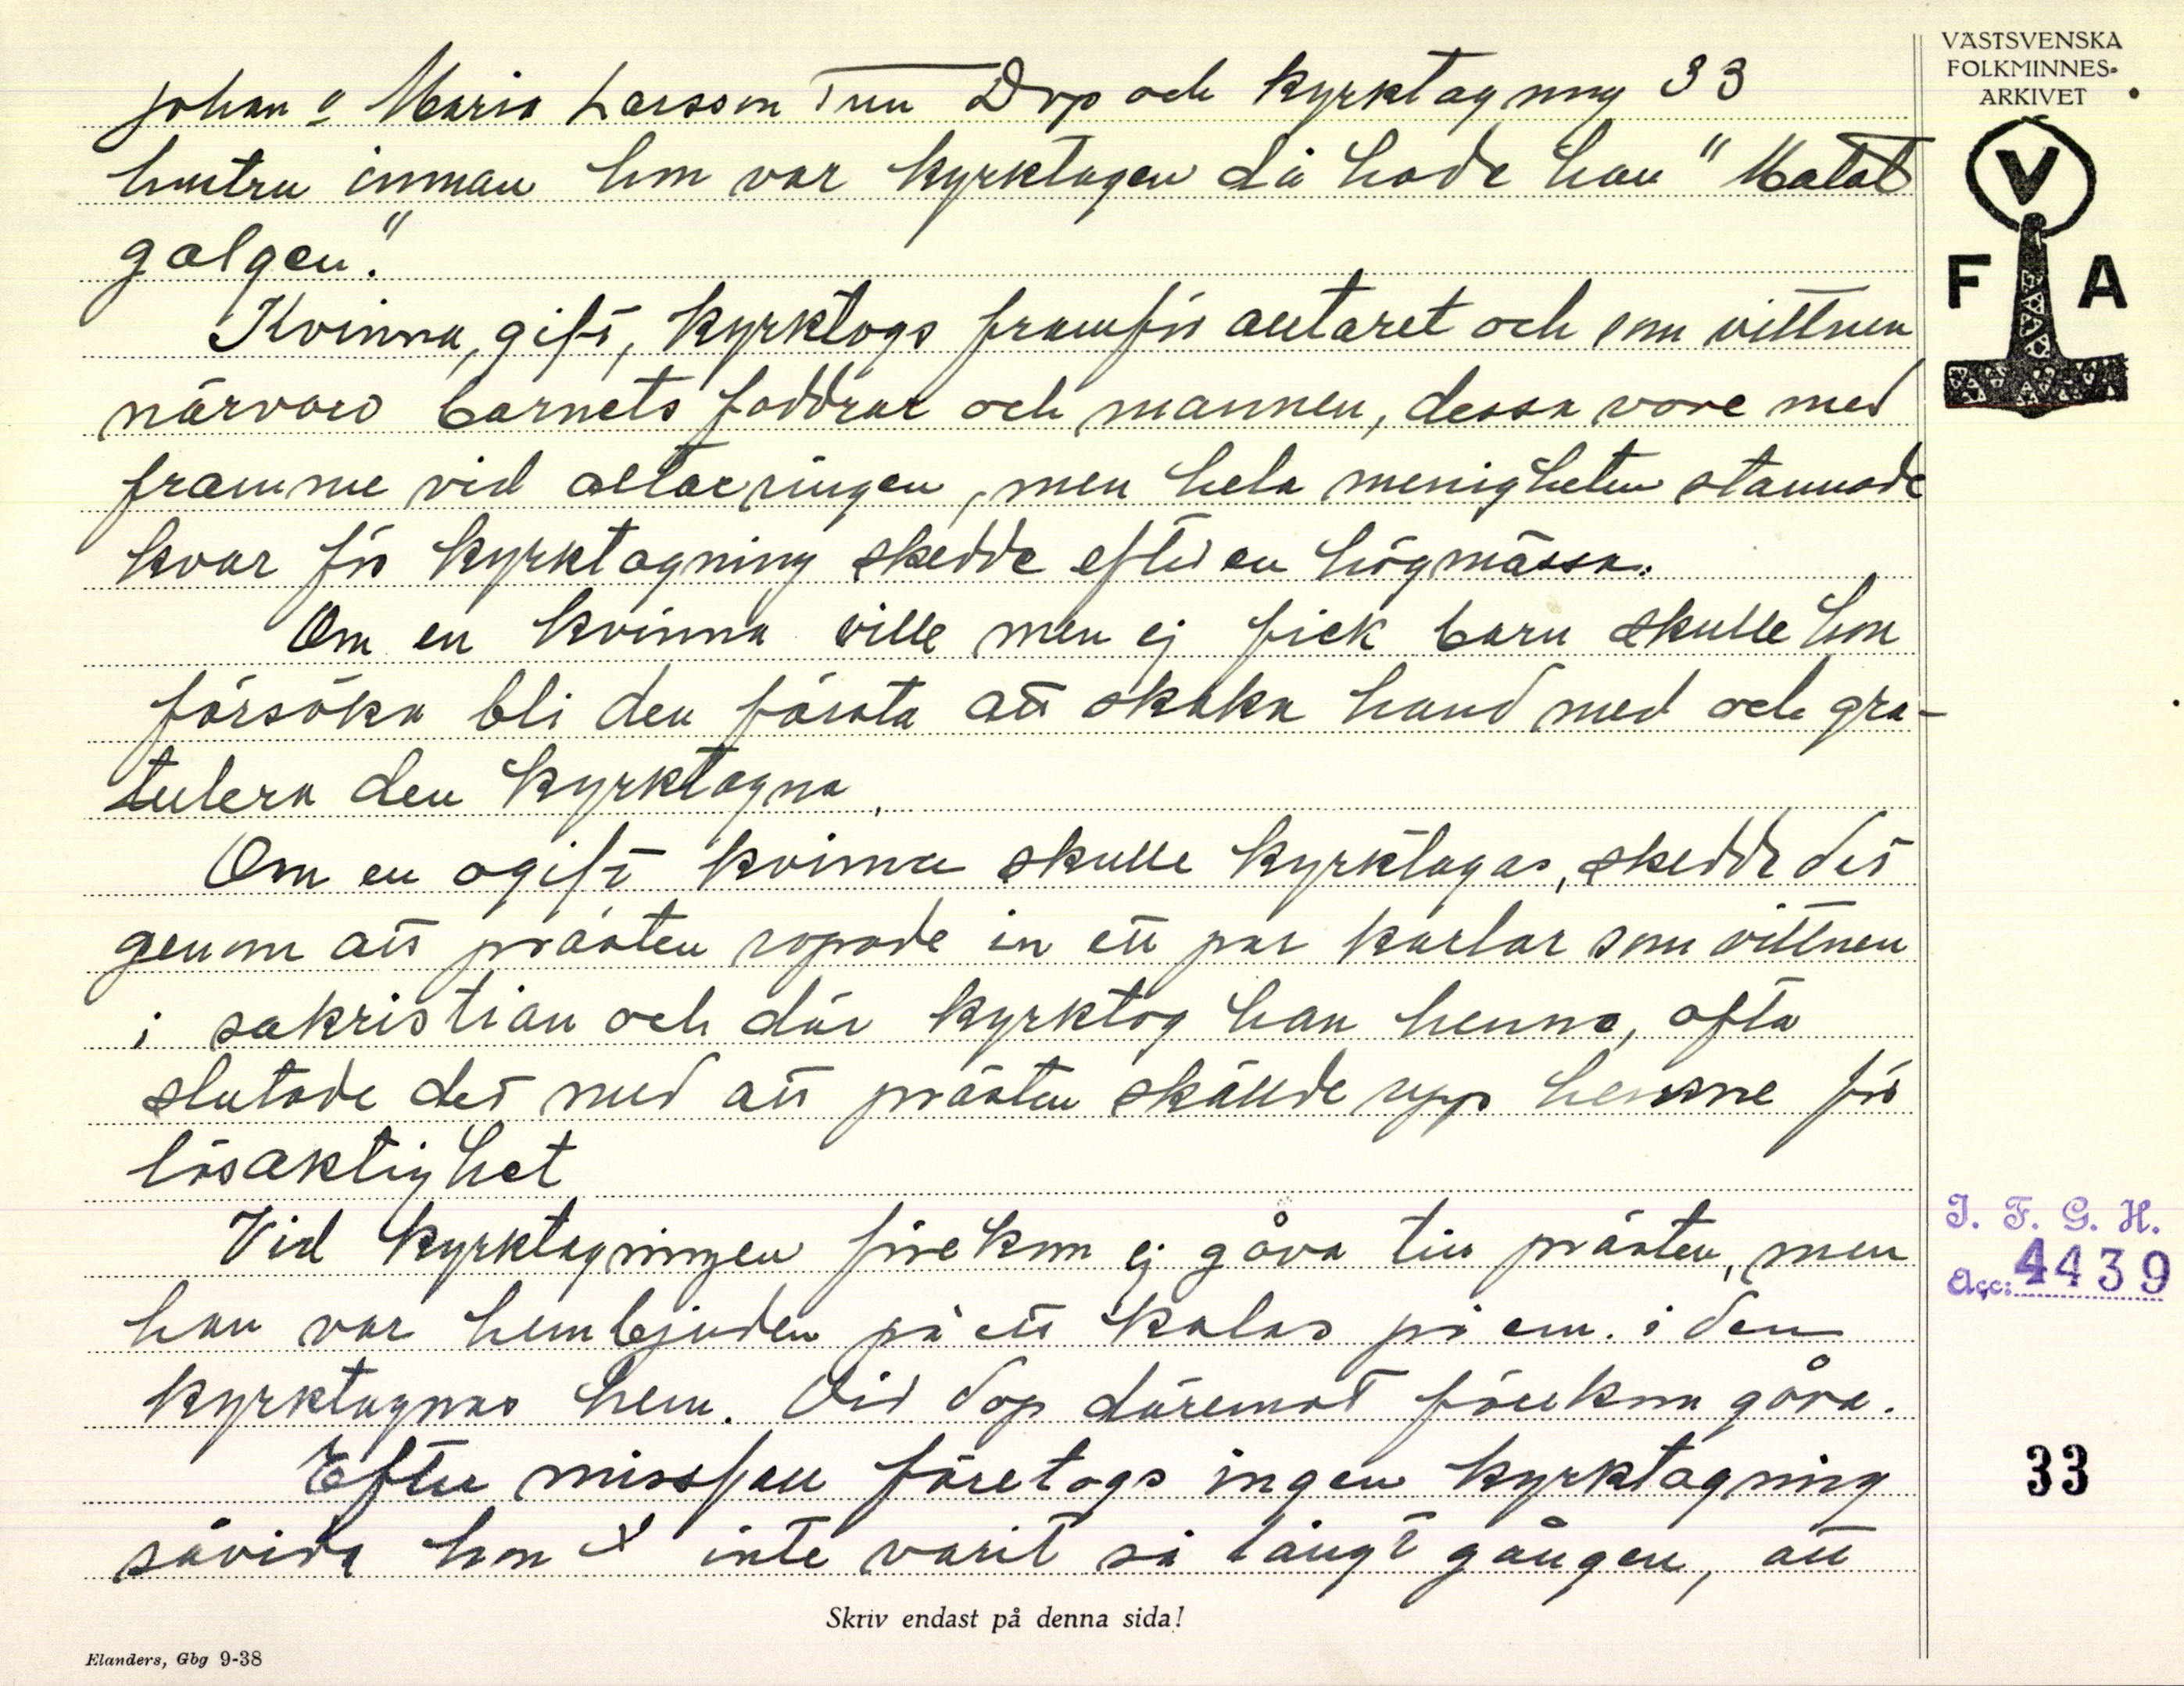 Johan o Maria Larsson Tun Dop och kyrktagning 33
hustru innan hon var kyrktagen då hade han "Matat
galgen."
Kvinna, gift, kyrktogs framför altaret och som vittnen
närvaro barnets faddrar och mannen, dessa vore med
framme vid altarringen, men hela menigheten stannade
kvar för kyrktagning skedde efter en högmässa.
Om en kvinna ville men ej fick barn skulle hon
försöka bli den första att skaka hand med och gra-
tulera den kyrktagna.
Om en ogift kvinna skulle kyrktagas, skedde det
genom att prästen ropade in ett par karlar som vittnen
i sakristian och där kyrktog han henne, ofta
slutade det med att prästen skällde upp henne för
lösaktighet
Vid kyrktagningen förekom ej gåva till prästen, men
han var hembjuden på ett kalas på em. i den
kyrktagnas hem. Vid dop däremot förekom gåva.
Efter missfall företogs ingen kyrktagning
såvida hon ej inte varit så långt gången, att
Skriv endast på denna sida!
Elanders, Gbg 9-38
VÄSTSVENSKA
FOLKMINNES-
ARKIVET
V
F A
I. F. G. H.
Acc: 4439
33